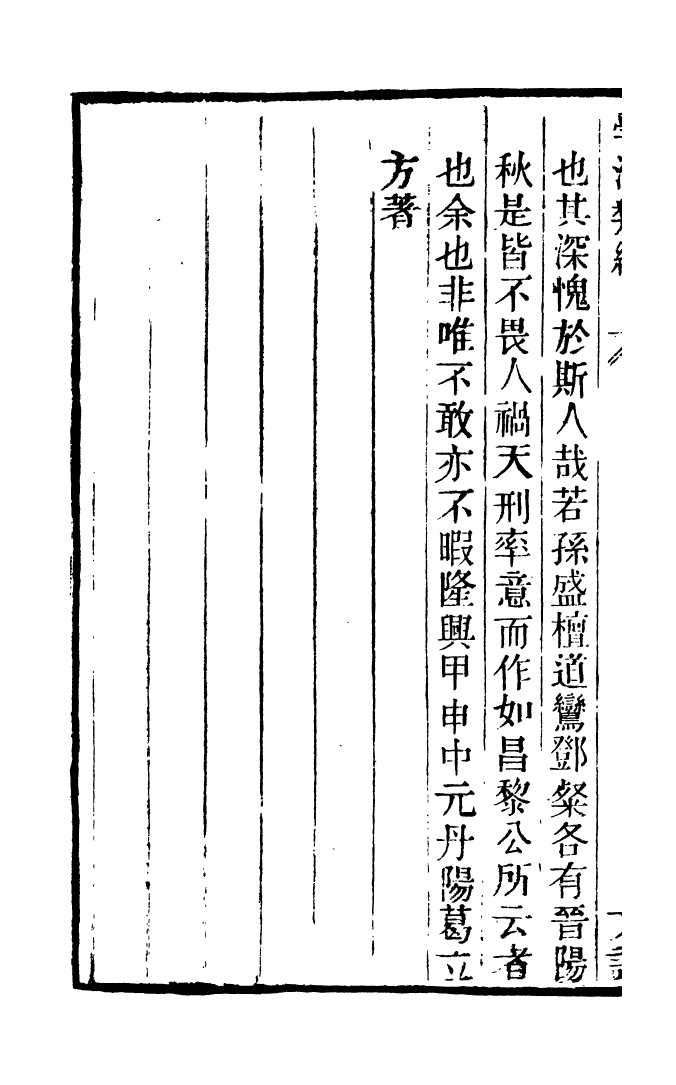 也其深愧於斯人哉若孫盛檀道鸞鄧粲各有晉陽
秋是皆不畏人禍天刑率意而作如昌黎公所云者
也余也非唯不敢亦不暇隆興甲申中元丹陽葛立
方著